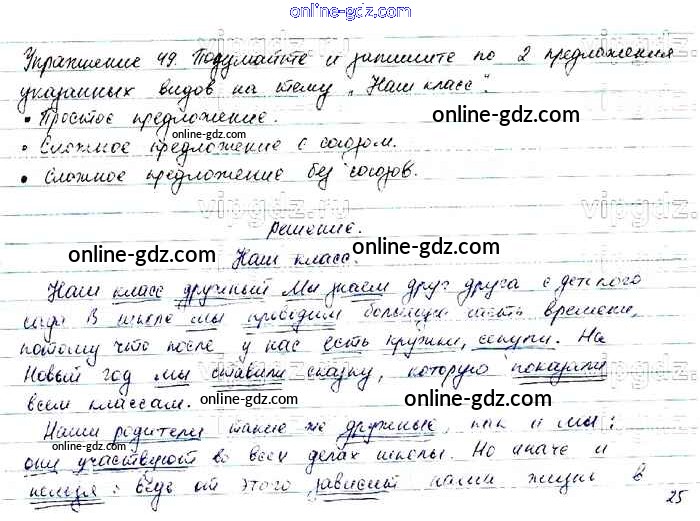 online-gdz.com
Упражнение 49. Подумайте и запишите по 2 предложения
указанных видов на тему „Наш класс".
online-gdz.com
• Простое предложение.
online-gdz.com
• Сложное предложение с союзом.
online-gdz.com
• Сложное предложение без союзов.
vipgdz.ru
Решение.
online-gdz.com
online-gdz.com
Наш класс.
Наш класс дружный. Мы знаем друг друга с детского
сада. В школе мы проводим большую часть времени,
потому что после у нас есть кружки, секции. На
Новый год мы ставили сказку, которую показали
всем классам.
online-gdz.com
online-gdz.com
Наши родители такие же дружные, как и мы:
online-gdz.com
они участвуют во всех делах школы. Но иначе и
нельзя: ведь от этого зависит наша жизнь в
25